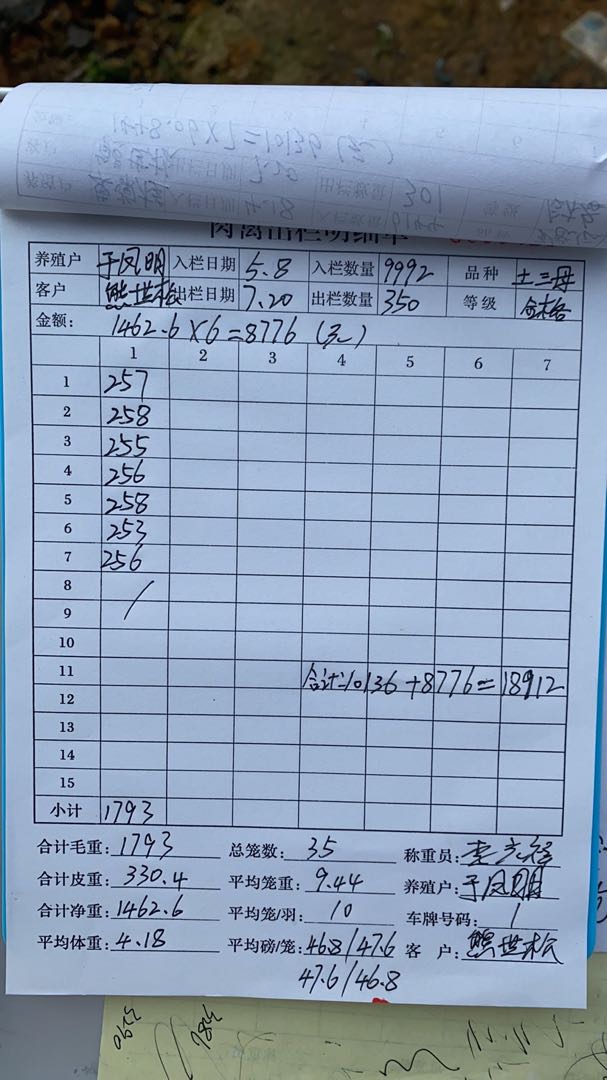 肉禽出栏明细单
养殖户 于凤明 入栏日期 5.8 入栏数量 9992 品种 土三母
客户 熊世松 出栏日期 7.20 出栏数量 350 等级 合格
金额: 1462.6×6=8776(元)
1 2 3 4 5 6 7
1 257
2 258
3 255
4 256
5 258
6 253
7 256
8 /
9
10
11 合计:10136+8776=18912
12
13
14
15
小计 1793
合计毛重: 1793 总笼数: 35 称重员:
合计皮重: 330.4 平均笼重: 9.44 养殖户: 于凤明
合计净重: 1462.6 平均笼/羽: 10 车牌号码: 1
平均体重: 4.18 平均磅/笼: 46.8/47.6 客 户: 熊世松
47.6/46.8
3290 3286